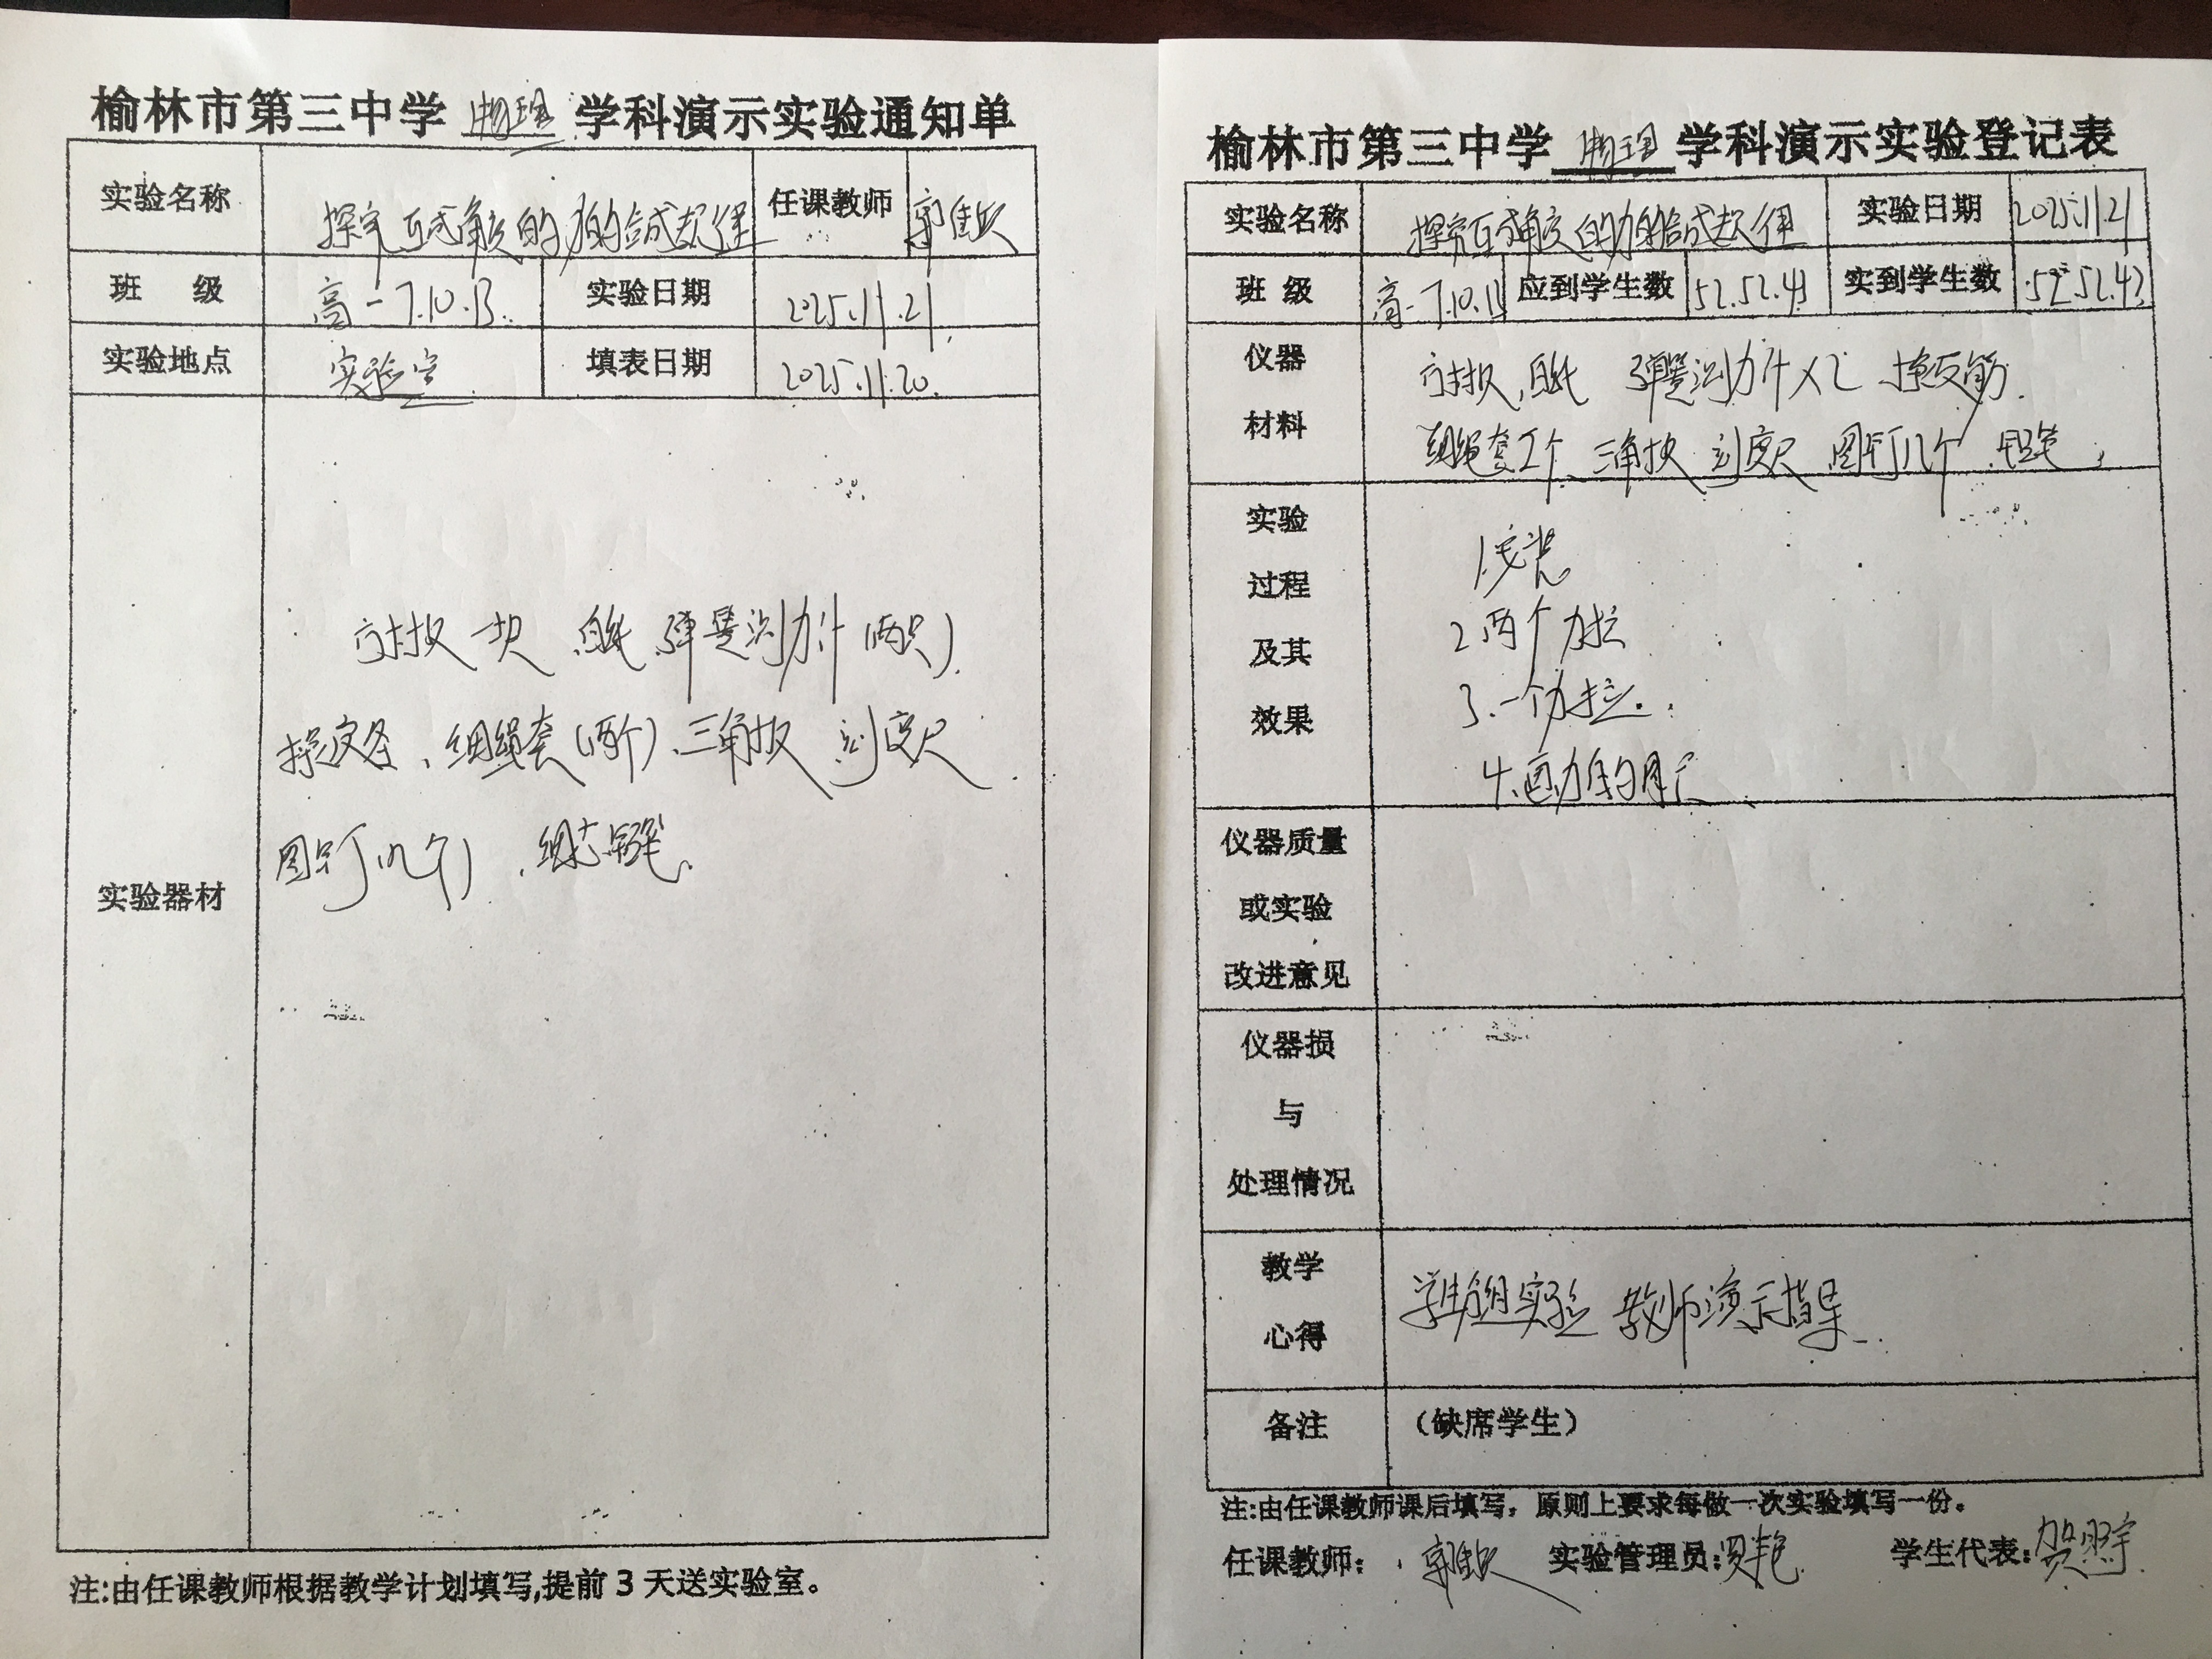 榆林市第三中学 物理 学科演示实验通知单
实验名称 探究互成角度的力的合成规律 任课教师
班 级 高一7.10.13. 实验日期 2025.11.21.
实验地点 实验室 填表日期 2025.11.20.
实验器材
方木板一块、白纸、弹簧测力计(两只)、
橡皮条、细绳套(两个)、三角板、刻度尺
图钉(几个)、细芯铅笔.
注:由任课教师根据教学计划填写,提前3天送实验室。
榆林市第三中学 物理 学科演示实验登记表
实验名称 探究互成角度的力的合成规律 实验日期 2025.11.21
班 级 高一7.10.13 应到学生数 52.52.43 实到学生数 52.52.43
仪器
材料
方木板,白纸 弹簧测力计×2 橡皮筋.
细绳套2个、三角板 刻度尺 图钉几个 铅笔
实验
过程
及其
效果
1.安装
2.两个力拉
3.一个力拉.
4.画力的图示
仪器质量
或实验
改进意见
仪器损
与
处理情况
教学
心得
学生分组实验 教师演示指导
备注 (缺席学生)
注:由任课教师课后填写,原则上要求每做一次实验填写一份。
任课教师: 实验管理员: 学生代表: